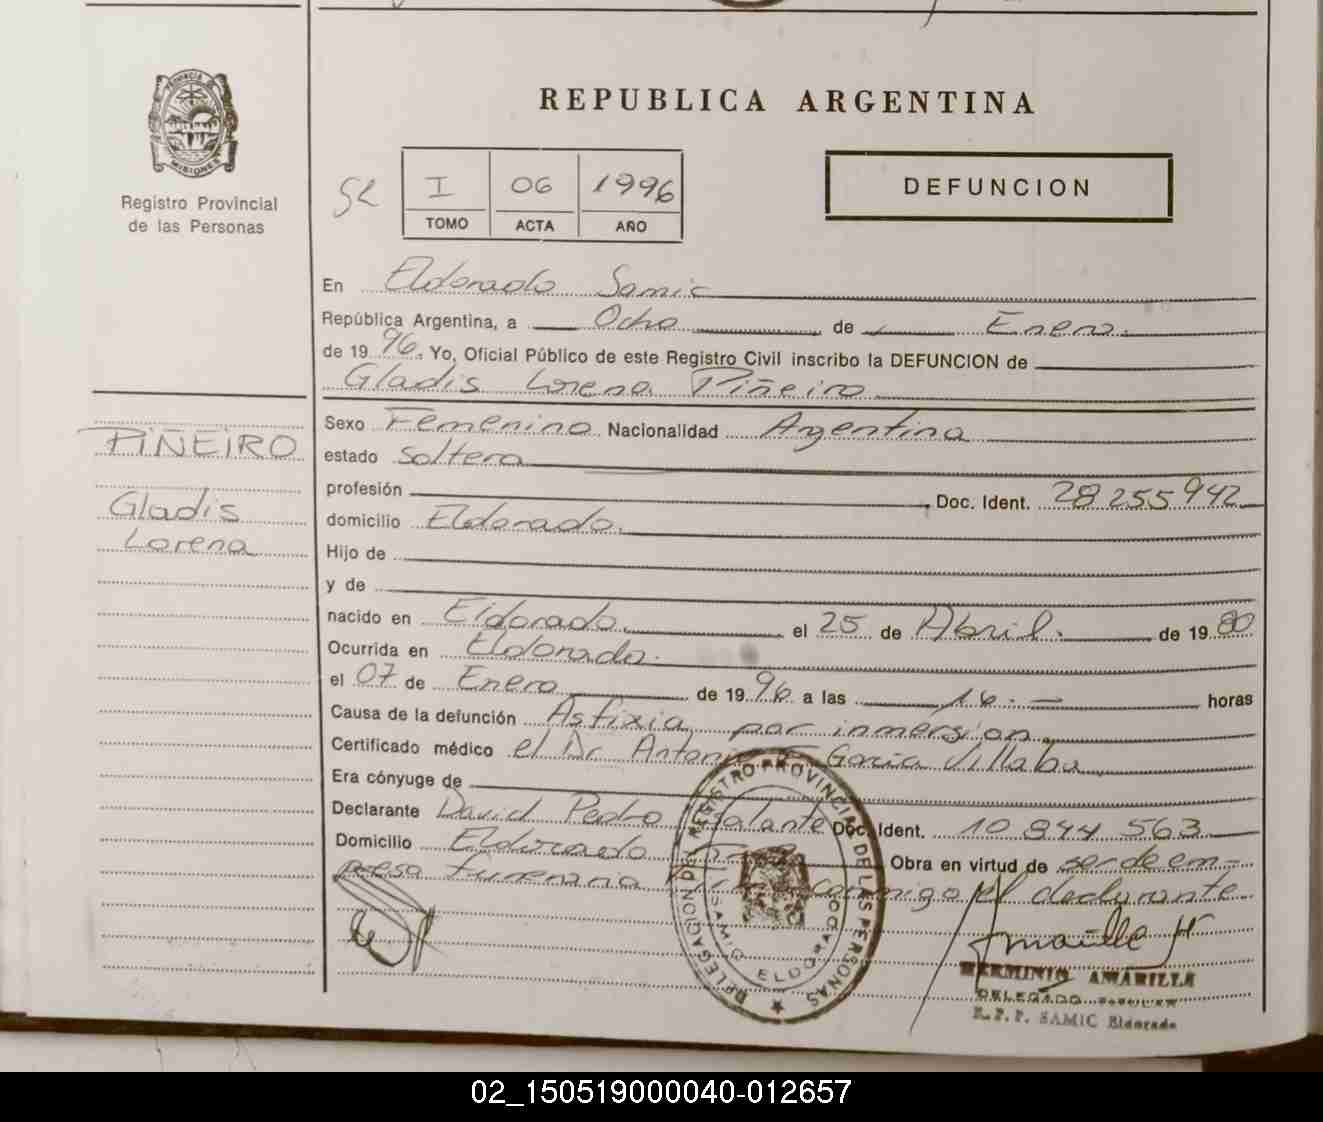 REPUBLICA ARGENTINA
PROVINCIA DE
MISIONES
Registro Provincial
de las Personas
I 06 1996
TOMO ACTA AÑO
DEFUNCION
En Eldorado Samic
República Argentina, a Ocho de Enero.
de 1996. Yo, Oficial Público de este Registro Civil inscribo la DEFUNCION de
Gladis Lorena Piñeiro
PIÑEIRO
Gladis
Lorena
Sexo Femenino Nacionalidad Argentina
estado soltera
profesión Doc. Ident. 28255942
domicilio Eldorado.
Hijo de
y de
nacido en Eldorado. el 25 de Abril. de 1980
Ocurrida en Eldorado.
el 07 de Enero de 1996 a las 16.- horas
Causa de la defunción Asfixia por inmersión.
Certificado médico el Dr. Antonio García Villalba
Era cónyuge de
Declarante David Pedro Galante Doc. Ident. 10 844 563
Domicilio Eldorado Obra en virtud de ser de em-
presa funeraria conmigo el declarante
DELEGACION DEL REGISTRO PROVINCIAL DE LAS PERSONAS
SAMIC ELDORADO
Amarilla H
HERMINIO AMARILLA
DELEGADO
R.P.P. SAMIC Eldorado
02_150519000040-012657